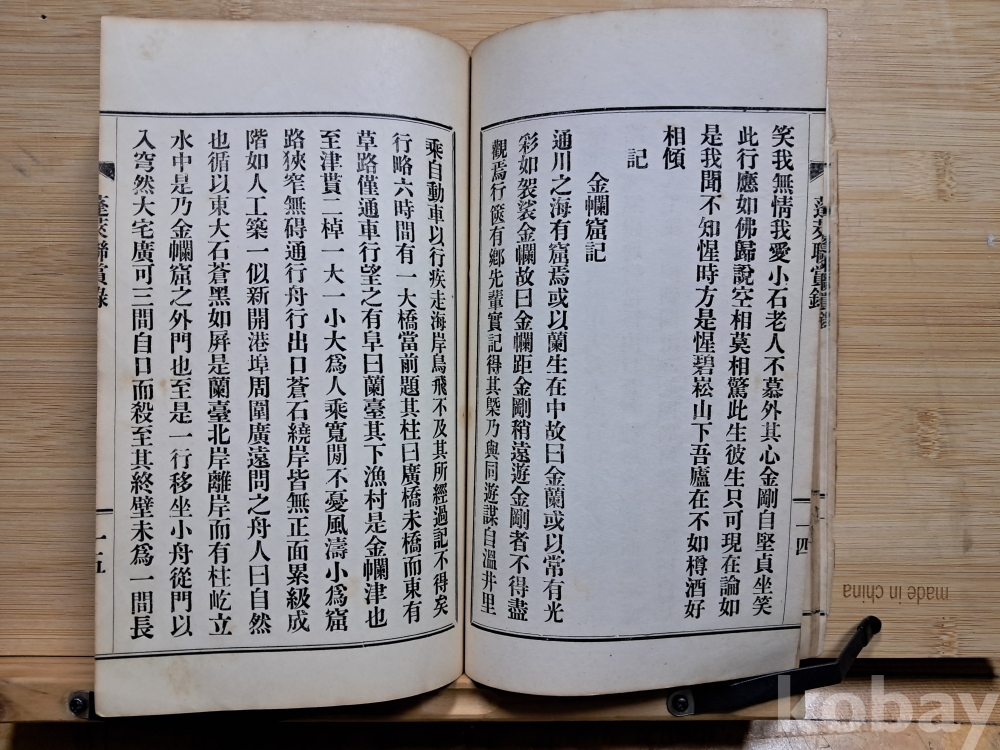 笑我無情我愛小石老人不慕外其心金剛自堅貞坐笑
此行應如佛歸說空相莫相驚此生彼生只可現在論如
是我聞不知惺時方是惺碧崧山下吾廬在不如樽酒好
相傾
記
金幱窟記
通川之海有窟焉或以蘭生在中故曰金蘭或以常有光
彩如袈裟金幱故曰金幱距金剛稍遠遊金剛者不得盡
觀焉行篋有鄕先輩實記得其槩乃與同遊謀自溫井里
十四
乘自動車以行疾走海岸鳥飛不及其所經過記不得矣
行略六時間有一大橋當前題其柱曰廣橋未橋而東有
草路僅通車行望之有阜曰蘭臺其下漁村是金幱津也
至津貰二棹一大一小大爲人乘寬閒不憂風濤小爲窟
路狹窄無碍通行舟行出口蒼石繞岸皆無正面累級成
階如人工築一似新開港埠周圍廣遠問之舟人曰自然
也循以東大石蒼黑如屛是蘭臺北岸離岸而有柱屹立
水中是乃金幱窟之外門也至是一行移坐小舟從門以
入穹然大宅廣可三間自口而殺至其終壁未爲一間長
蓬萊聯賞錄
十五
made in china
kobay